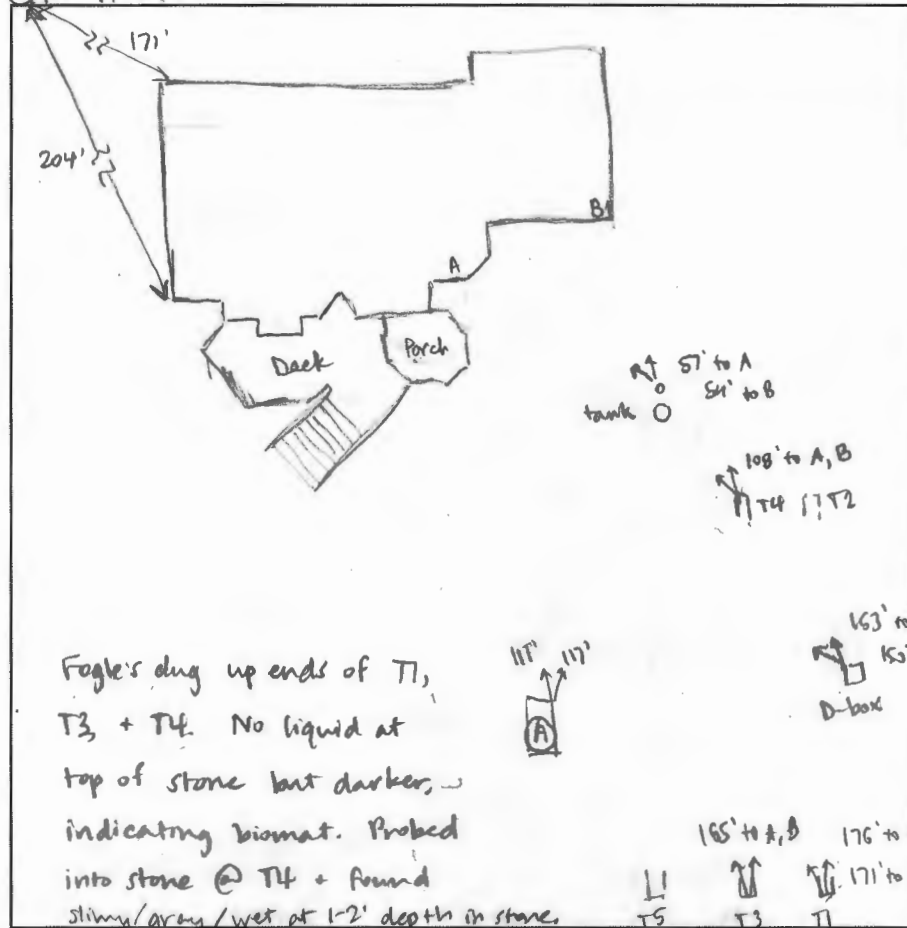 171'
204'
B
A
Deck
Porch
57' to A
54' to B
tank
108' to A, B
T4 T2
153' to
D-box
117' 117'
A
Fogle's dug up ends of T1,
T3, + T4. No liquid at
top of stone but darker,
indicating biomat. Probed
into stone @ T4 + found
slimy/gray/wet at 1-2' depth in stone.
165' to A, B
176' to
171' to
T5 T3 T1